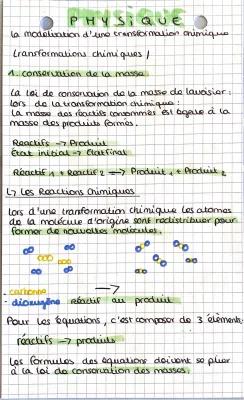 PHYSIQUE
La modélisation d'une transformation chimique
(transformations chimiques)
1. conservation de la masse
La loi de conservation de la masse de lavoisier:
lors de la transformation chimique:
la masse des réactifs consommés est égale à la
masse des produits formés.
Réactifs -> Produit
Etat initial -> Etat final
Réactif 1 + Reactif 2 -> Produit 1 + Produit 2
↳ Les Reactions chimiques
lors d'une transformation chimique les atomes
de la molécule d'origine sont redistribuer pour
former de nouvelles molécules.
- carbone
- dioxygène réactif au produit
Pour les équations, c'est composer de 3 éléments:
réactifs -> produits
Les formules des équations doivent se plier
à la loi de conservation des masses.